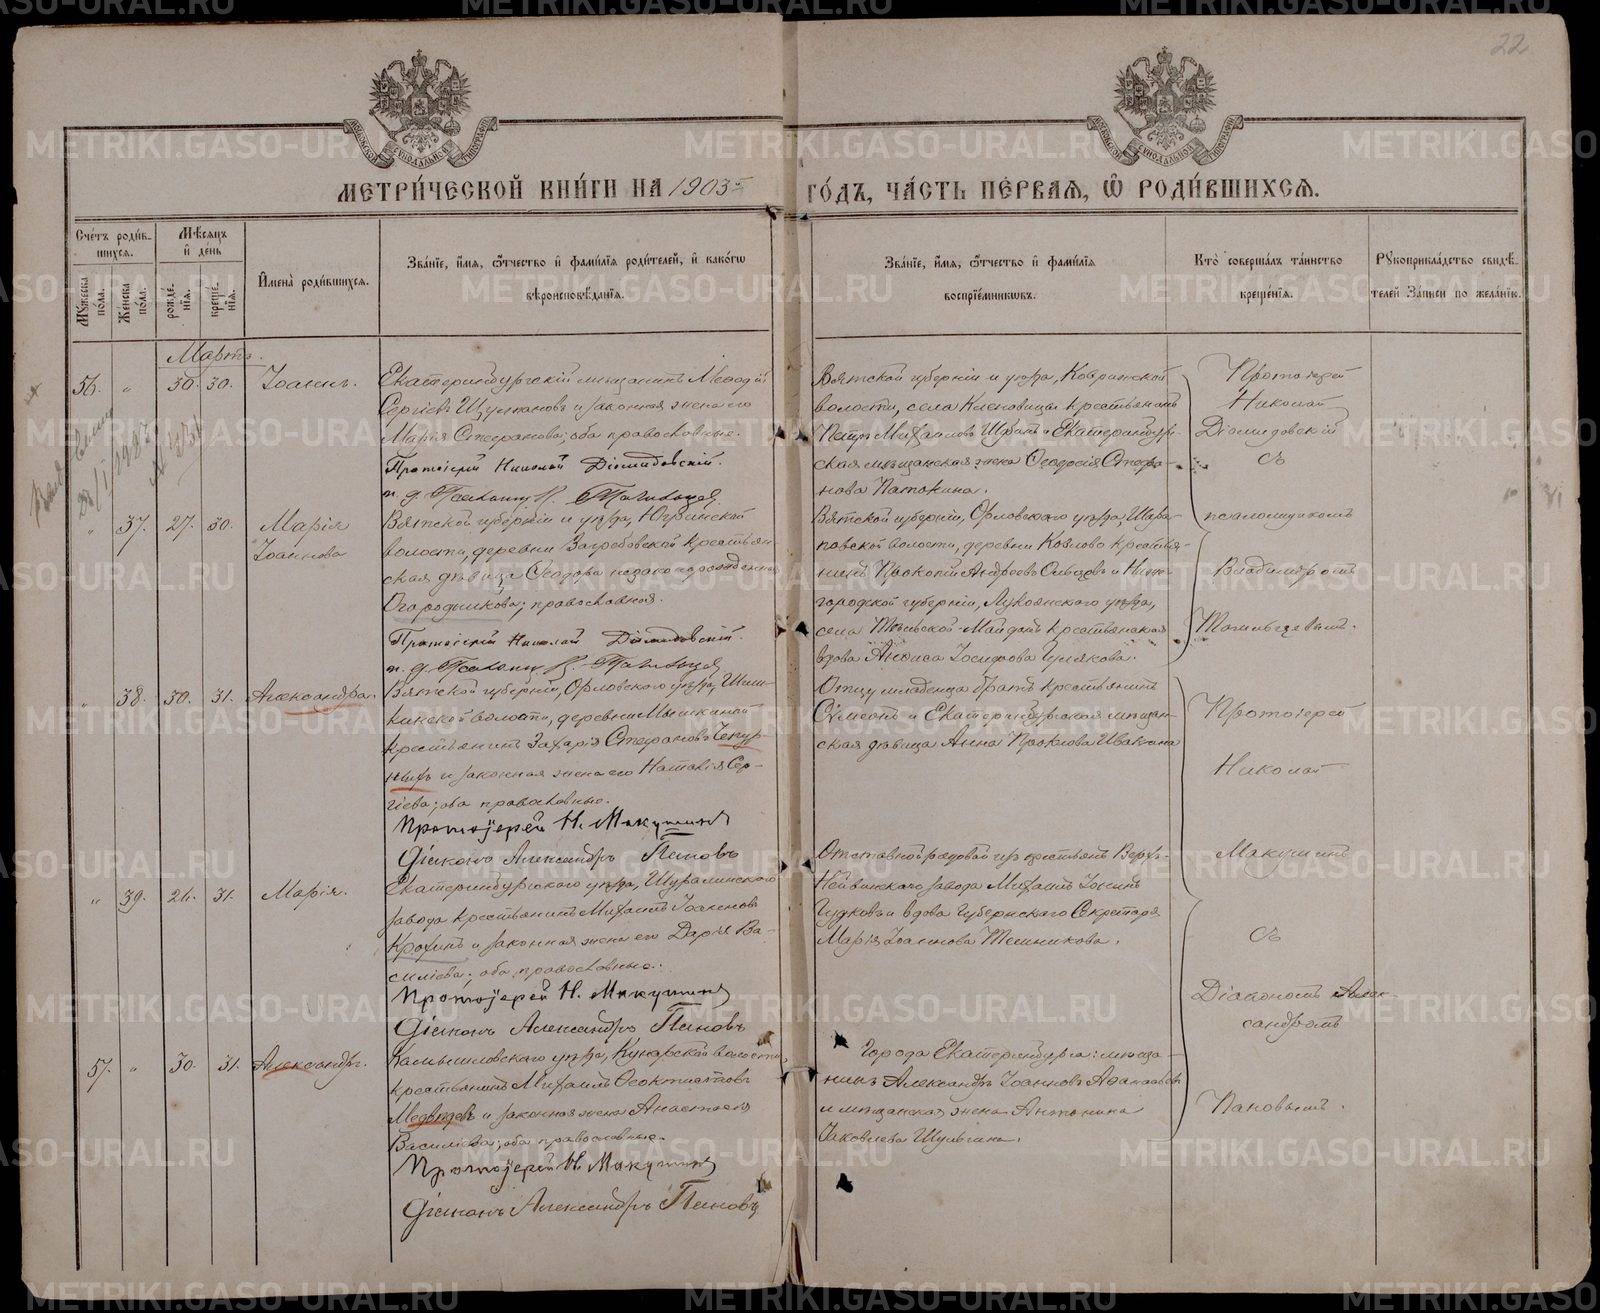 22
МЕТРИ́ЧЕСКОЙ КНИ́ГИ НА 1903й ГО́ДЪ, ЧА́СТЬ ПЕ́РВАѦ, Ѽ РОДИ́ВШИХСѦ.
Сче́тъ роди́в-
шихсѧ.
Мѣ́сѧцъ
и҆ де́нь
Мꙋ́жеска по́ла.
Же́нска по́ла.
рожде́нїѧ.
креще́нїѧ.
И҆мена̀ роди́вшихсѧ.
Зва́нїе, и҆́мѧ, ѻ҆́тчество и҆ фами́лїѧ роди́телей, и҆ како́гѡ
вѣроисповѣ́данїѧ.
Зва́нїе, и҆́мѧ, ѻ҆́тчество и҆ фами́лїѧ
воспрїе́мникѡвъ.
Кто̀ соверша́лъ та́инство
креще́нїѧ.
Рꙋкоприкла́дство свидѣ́-
телей за́писи по жела́нїю.
Мартъ.
56. " 30. 30. Іоаннъ.
Екатеринбургскій мѣщанинъ Меѳодій
Сергіевъ и законная жена его
Марія Стефанова; оба православные.
Протоіерей Николай Діомидовскій.
и. д. Псаломщ. В.
Вятской губерніи и уѣзда,
волости, села крестьянинъ
Петръ Михаиловъ и Екатеринбург-
ская мѣщанская жена Ѳеодосія Стефа-
нова
Протоіерей
Николай
Діомидовскій
съ
псаломщикомъ
Владиміромъ
" 37. 27. 30. Марія
Іоаннова
Вятской губерніи и уѣзда,
волости, деревни крестьян-
ская дѣвица Ѳеодора незаконнорожденная
Огородникова; православная.
Протоіерей Николай Діомидовскій.
и. д. Псаломщ. В.
Вятской губерніи, Орловскаго уѣзда, Шара-
повской волости, деревни Козлово крестья-
нинъ Прокопій Андреевъ и Ниже-
городской губерніи, Лукоянскаго уѣзда,
села Майданъ крестьянская
вдова Анфиса Іосифова Гулякова.
" 38. 30. 31. Александра.
Вятской губерніи, Орловскаго уѣзда,
волости, деревни
крестьянинъ Захарія Стефановъ Чепур-
ныхъ и законная жена его Наталія Сер-
гіева; оба православные.
Протоіерей Н. Макушинъ
Діаконъ Александръ Пановъ
Отцу младенца братъ крестьянинъ
Сѵмеонъ и Екатеринбургская мѣщан-
ская дѣвица Анна Проклова Ивакина
Протоіерей
Николай
Макушинъ
съ
Діакономъ Алек-
сандромъ
Пановымъ.
" 39. 26. 31. Марія.
Екатеринбургскаго уѣзда, Шуралинскаго
завода крестьянинъ Михаилъ Іоакимовъ
Крохинъ и законная жена его Дарія Ва-
силіева; оба православные.
Протоіерей Н. Макушинъ
Діаконъ Александръ Пановъ
Отставной рядовой изъ крестьянъ Верхъ-
Нейвинскаго завода Михаилъ
Гудковъ и вдова Губернскаго Секретаря
Марія Іоаннова
57. " 30. 31. Александръ.
Камышловскаго уѣзда, Кунарской волости,
крестьянинъ Михаилъ Ѳеоктистовъ
Медвѣдевъ и законная жена Анастасія
Василіева; оба православные.
Протоіерей Н. Макушинъ
Діаконъ Александръ Пановъ
Города Екатеринбурга: мѣща-
нинъ Александръ Іоанновъ
и мѣщанская жена Антонина
Іаковлева Шульгина.
METRIKI.GASO-URAL.RU